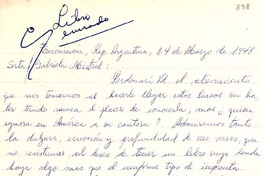 878
Libro
enviado
Tucumán, Rep. Argentina, 24 de Marzo de 1948
Srta. Gabriela Mistral:
Perdonará Ud. el atrevimiento
que nos tomamos al hacerle llegar estas líneas sin ha
ber tenido nunca el placer de conocerla, mas ¿quien
ignora en América a su cantora? Admiramos tanto
la dulzura, emoción y profundidad de sus versos, que
no resistimos al deseo de tener un libro suyo donde
haya algo mas que el uniforme tipo de imprenta.